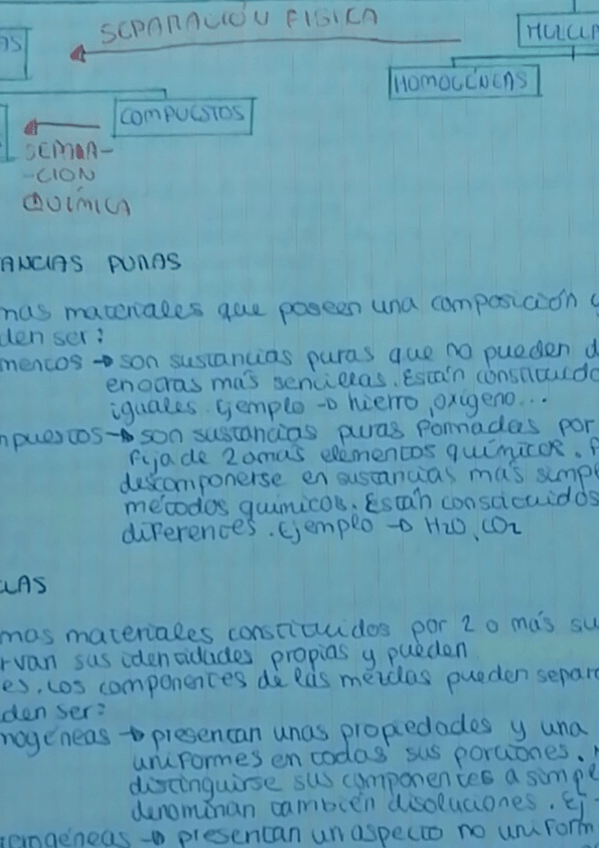 SEPARACIÓN FÍSICA
AS
HOMOGÉNEAS
COMPUESTOS
SEPARA-
-CIÓN
QUÍMICA
ANCIAS PURAS
mas materiales que poseen una composición
den ser:
mentos → son sustancias puras que no pueden d
en otras más sencillas. Están constituido
iguales. Ejemplo → hierro, oxígeno...
mpuestos → son sustancias puras formadas por
fija de 2 o más elementos químicos. P
descomponerse en sustancias más simpl
métodos químicos. Están constituidos
diferentes. Ejemplo → H2O, CO2
LAS
mas materiales constituidos por 2 o más su
rvan sus identidades propias y pueden
es. Los componentes de las mezclas pueden separa
den ser:
mogéneas → presentan unas propiedades y una
uniformes en todas sus porciones.
distinguirse sus componentes a simple
denominan también disoluciones. Ej
terogéneas → presentan un aspecto no uniform